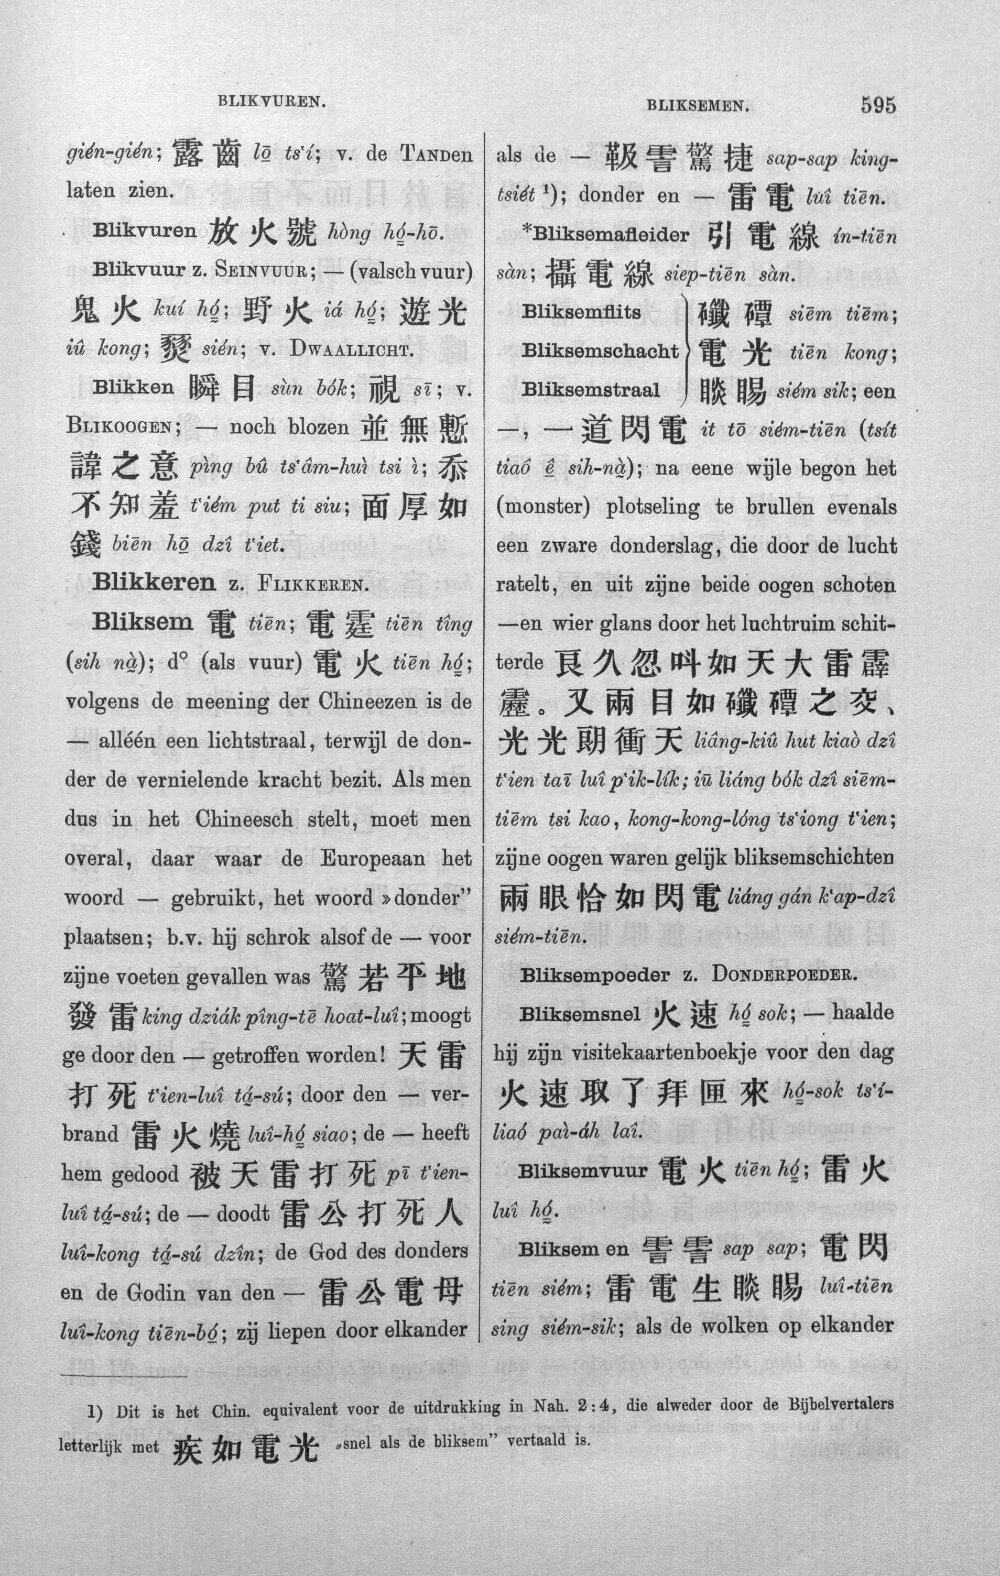 BLIKVUREN.
BLIKSEMEN.
595
gién-gién; 露齒 lō ts‘í; v. de TANDen
laten zien.
Blikvuren 放火號 hòng hó̤-hō.
Blikvuur z. SEINVUUR; — (valsch vuur)
鬼火 kuí hó̤; 野火 iá hó̤; 遊光
iû kong; 燹 sién; v. DWAALLICHT.
Blikken 瞬目 sùn bók; 視 sī; v.
BLIKOOGEN; — noch blozen 並無慙
諱之意 pìng bû ts‘âm-huì tsi ì; 忝
不知羞 t‘iém put ti siu; 面厚如
錢 biēn hō̤ dzî t‘iet.
Blikkeren z. FLIKKEREN.
Bliksem 電 tiēn; 電霆 tiēn tîng
(sih nà̤); d° (als vuur) 電火 tiēn hó̤;
volgens de meening der Chineezen is de
— alléén een lichtstraal, terwijl de don-
der de vernielende kracht bezit. Als men
dus in het Chineesch stelt, moet men
overal, daar waar de Europeaan het
woord — gebruikt, het woord »donder”
plaatsen; b.v. hij schrok alsof de — voor
zijne voeten gevallen was 驚若平地
發雷 king dziák pîng-tē hoat-luî; moogt
ge door den — getroffen worden! 天雷
打死 t‘ien-luî tá̤-sú; door den — ver-
brand 雷火燒 luî-hó̤ siao; de — heeft
hem gedood 被天雷打死 pī t‘ien-
luî tá̤-sú; de — doodt 雷公打死人
luî-kong tá̤-sú dzîn; de God des donders
en de Godin van den — 雷公電母
luî-kong tiēn-bó̤; zij liepen door elkander
als de — 靸雪驚捷 sap-sap king-
tsiét ¹); donder en — 雷電 luî tiēn.
*Bliksemafleider 引電線 ín-tiēn
sàn; 攝電線 siep-tiēn sàn.
Bliksemflits 礮磹 siēm tiēm;
Bliksemschacht 電光 tiēn kong;
Bliksemstraal 睒賜 siém sik; een
—, 一道閃電 it tō siém-tiēn (tsít
tiaó ê̤ sih-nà̤); na eene wijle begon het
(monster) plotseling te brullen evenals
een zware donderslag, die door de lucht
ratelt, en uit zijne beide oogen schoten
—en wier glans door het luchtruim schit-
terde 良久忽叫如天大雷霹
靂。又兩目如磹之交、
光光朗衝天 liâng-kiû hut kiaò dzî
t‘ien taī luî p‘ik-lík; iū liáng bók dzî siēm-
tiēm tsi kao, kong-kong-lóng ts‘iong t‘ien;
zijne oogen waren gelijk bliksemschichten
兩眼恰如閃電 liáng gán k‘ap-dzî
siém-tiēn.
Bliksempoeder z. DONDERPOEDER.
Bliksemsnel 火速 hó̤ sok; — haalde
hij zijn visitekaartenboekje voor den dag
火速取了拜匣來 hó̤-sok ts‘í-
liaó paì-áh laî.
Bliksemvuur 電火 tiēn hó̤; 雷火
luî hó̤.
Bliksemen sap sap; 電閃
tiēn siém; 雷電生睒賜 luî-tiēn
sing siém-sik; als de wolken op elkander
1) Dit is het Chin. equivalent voor de uitdrukking in Nah. 2:4, die alweder door de Bijbelvertalers
letterlijk met 疾如電光 „snel als de bliksem” vertaald is.